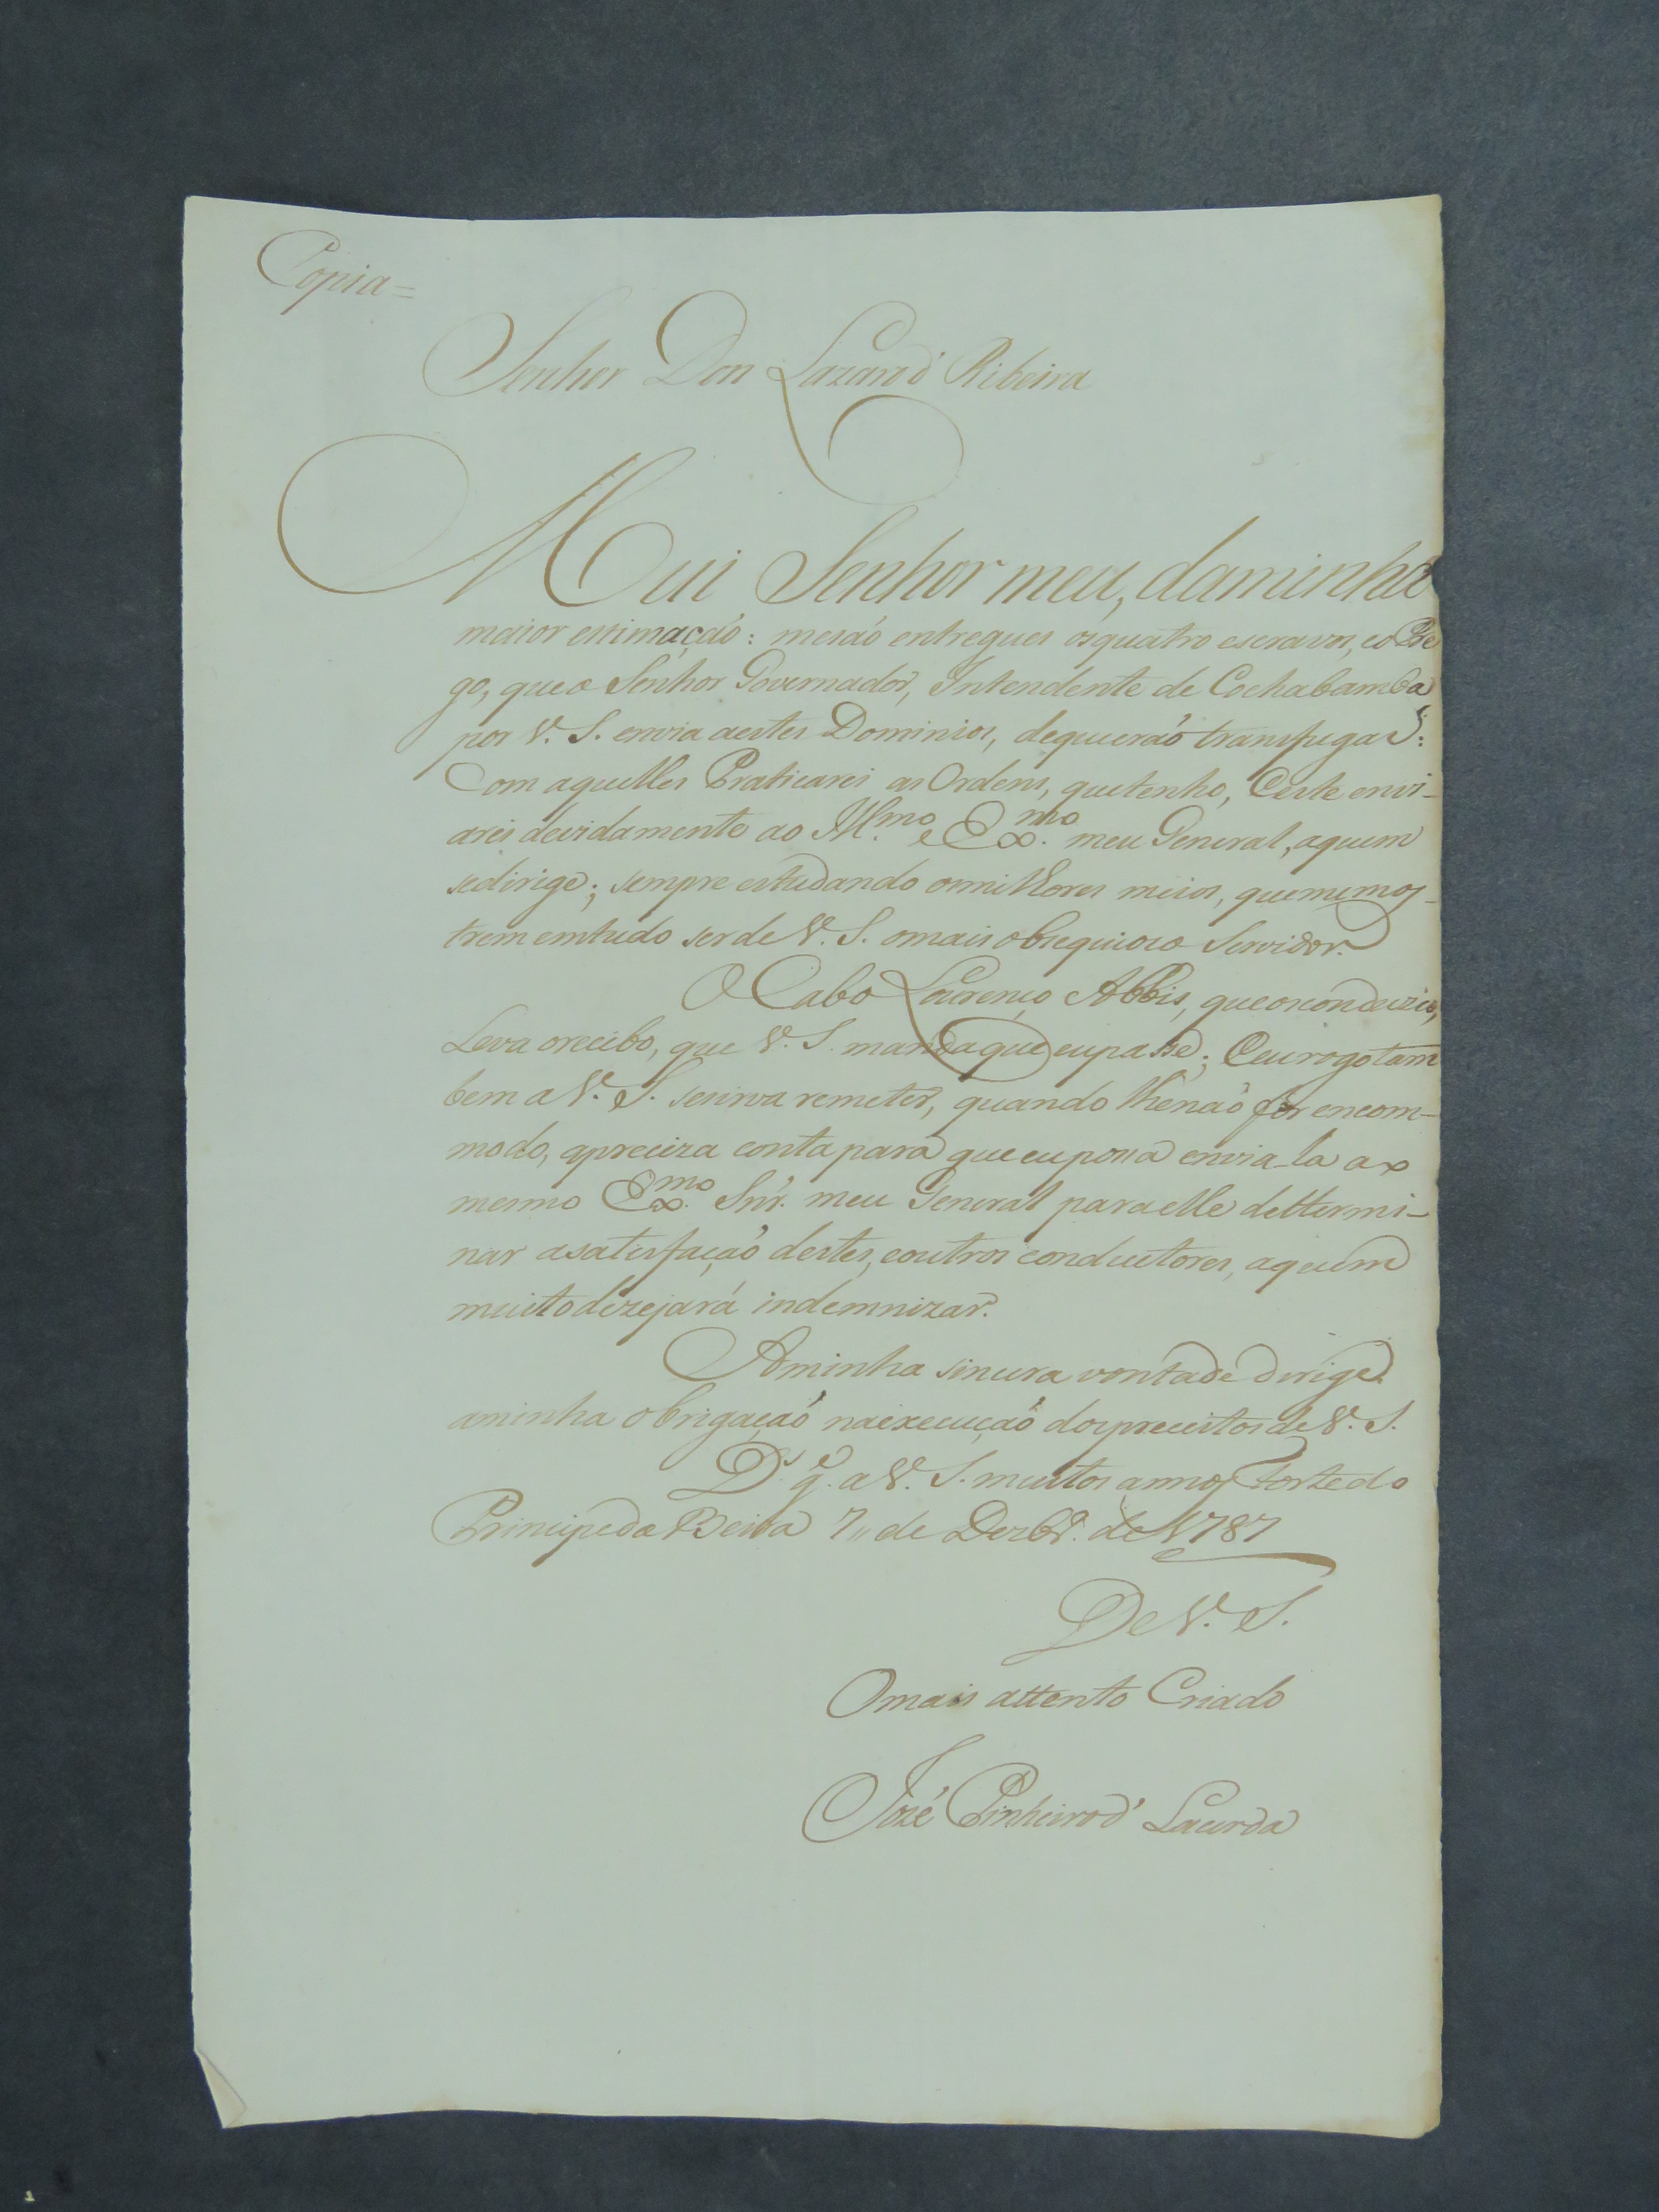 Copia=
Senhor Don Lazaro d' Ribeira
Mui Senhor meu, daminha
maior estimaçaõ: mesaõ entregues osquatro escravos, eo Pre
go, queo Senhor Governador, Intendente de Cochabamba
por V. S. envia aestes Dominios, dequieraõ transfugas:
Com aquelles Praticarei as Ordens, quetenho, Eeste envi-
arei devidamente ao Ill.mo e Ex.mo meu General, aquem
sedirige; sempre estudando osmilhores meios, quememos-
trem emtudo serde V. S. omais obsequioso Servidor.
O Cabo Lourenço Abbis, queosconduzio,
Leva orecibo, que V. S. mandaque eupasse; Eeurogotam
bem a V. S. sesirva remeter, quando lhenaõ for encom-
modo, apreciza conta para queeupossa envia-la ao
mesmo Ex.mo Snr. meu General paraelle dettermi-
nar asatisfaçaõ destes, eoutros conductores, aquem
muitodezejará indemnizar.
Aminha sincera vontade dirige
aminha obrigaçaõ naexecuçaõ dospreceitosde V. S.
D.s g.e a V. S. muitos annos Fortedo
Principeda Beira 7,, de Dezbr.o de 1787
De V. S.
Omais attento Criado
José Pinheirod' Lacerda